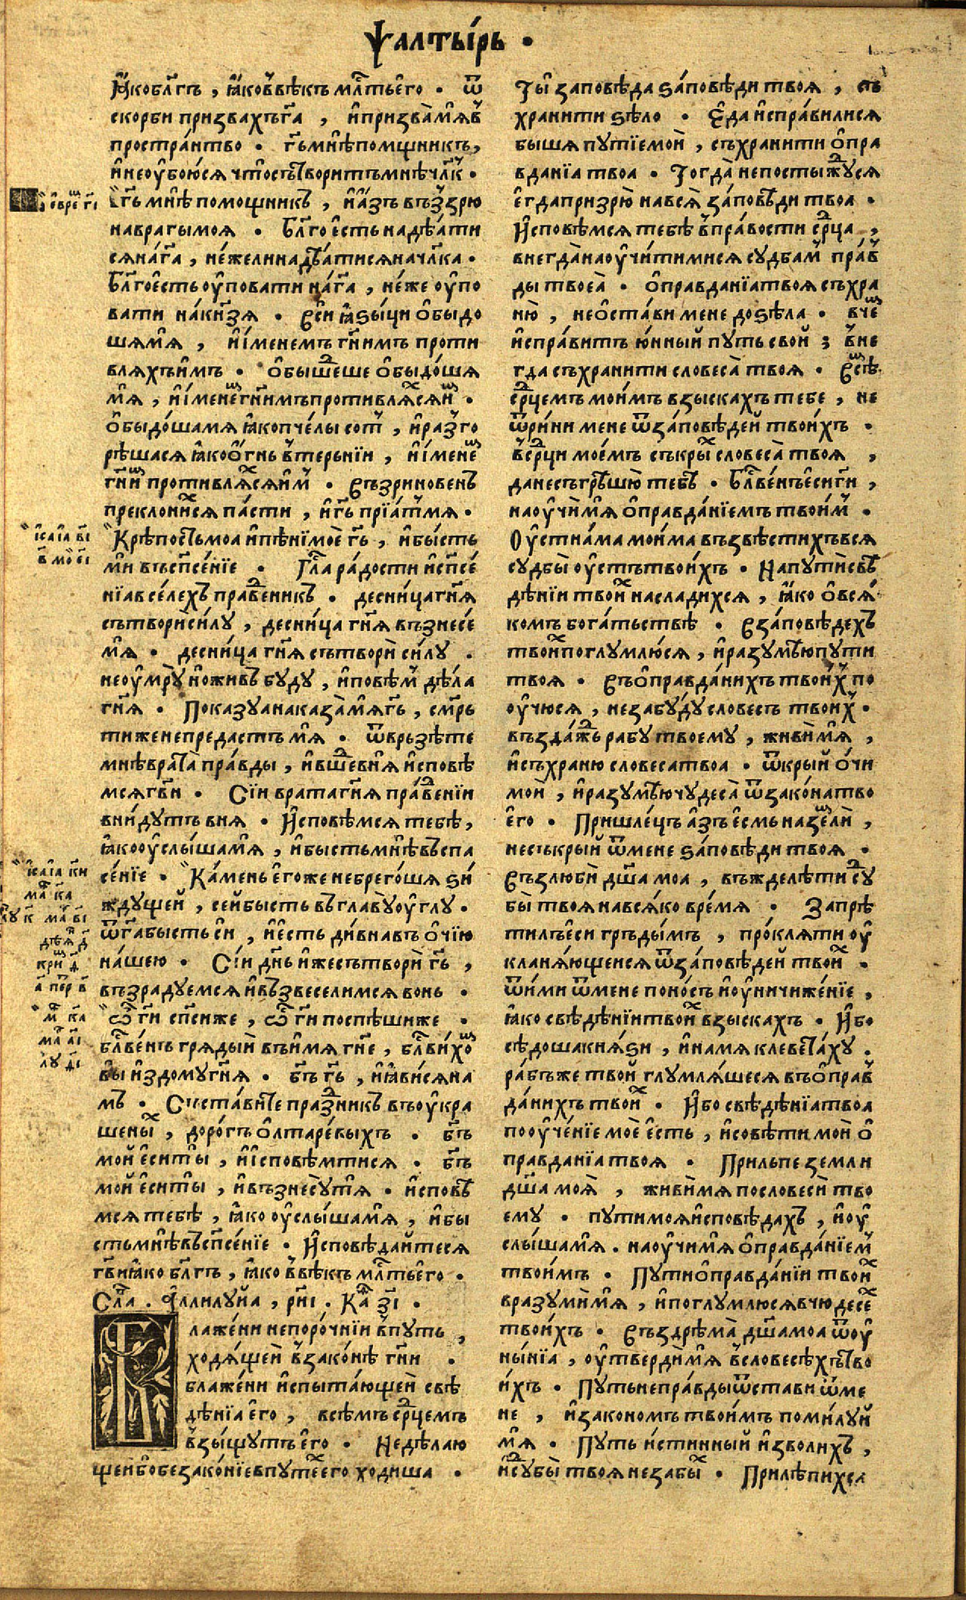 Ѱалты́рь .
ꙗ҆́коблг҃ъ , ꙗ҆́коввѣ́къ млⷭ҇тьего̀ . ѿ
скорби призвахъга҃ , и҆призва́мѧв
простра́нтво . гь҃мнѣпомщникъ,
и҆неоубою́сѧ чтосътворитъмнѣчл҃къ .
гь҃ мнѣ помощникъ , и҆а҆́зъ възⸯзрю
наврагымоѧ . Бл҃го е҆сть надѣ́ати
сѧна́га҃ , не́желинадѣ́атисѧначл҃ка .
Бл҃гоесть оу҆повати на́га҃ , не́же оу҆по
вати на́кнѧ҃зѧ . Вси ꙗ҆ѕы́ци ѡ҆быдо
шѧмѧ̀ , и҆и́менемъ гн҃имъ проти
влѧхъи́мъ . ѡ҆бышеⷣше ѡ҆быдо́шѧ
мѧ̀ , и҆именеⷨгн҃имъпротивлѧⷯсѧиⷨ .
ѡ҆быдо́шамѧ ꙗ҆копче́лы соⷮ , и҆разⸯго
рѣ́шасѧ ꙗ҆коо҆́гнь втерьнїи , и҆и́менеⷨ
гн҃иⷨ противлѧⷯсѧи́мⸯ . Въз̾риновенъ
преклони́хсѧ па́сти , и҆гь҃ прїа́тмѧ .
Крѣ́постьмоа и҆пѣ́нїмоѐ гь҃ , и҆бы́сть
ми въсп҃се́нїе . Гла҃ ра́дости и҆сп҃се́
нїа всѐлехъ праⷣвеникъ . десни́цагн҃ѧ
сътвори̂си́лу , десни́ца гн҃ѧ възнесе́
мѧ̀ . десни́ца гн҃ѧ сътвори̂ си́лу .
неоу҆мру̀ ноживъ буду , и҆повѣ́мⸯ дѣ́ла
гн҃ѧ . Показуанаказа́мѧгь҃ , смр҃ь
тиженепредастъ мѧ̀ . ѿврьзѣ́те
мнѣврата̀ пра́вды , и҆вшеⷣвнѧ и҆сповѣ́
мсѧгв҃и . Сїи вратагн҃ѧ праⷣвенїи
вни́дутъ внѧ . И҆сповѣ́мсѧ тебѣ̀ ,
ꙗ҆кооу҆слы́шамѧ̀ , и҆бы́стьмнѣвъспа
се́нїе . Ка́мень е҆гоже небрего́шѧ ѕи
ждущей , сейбы́сть въглавуоу҆́глу .
ѿга҃бысть си , и҆е́сть ди́внавъ о҆́чїю
на́шею . Сїи дн҃ь и҆жесътвори̂ гь҃ ,
възрадуемсѧ и҆възвеселимсѧ вонь .
Ѽ гн҃и сп҃сиже , Ѽ гн҃и поспѣшиже .
Бл҃ве́нъ грѧды́й въи́мѧ гн҃е , бл҃ви́хоⷨ
вы издомугн҃ѧ . Бг҃ъ гь҃ , и҆ꙗ҆ви́сѧна
мъ . Съставите праⷥникъ въоу҆кра
шены̂ , доро́гъ о҆лтаре́выхъ . Бг҃ъ
мой е҆ситы̀ , и҆и́сповѣ́мтисѧ . Бг҃ъ
мой е҆ситы̀ , и҆възнесу́тѧ . и҆сповѣ
мсѧ тебѣ̀ , ꙗ҆ко оу҆слы́шамѧ̀ , и҆бы
стьмнѣвъсп҃се́нїе . И҆сповѣ́дайтесѧ
гв҃иꙗ҆ко бл҃гъ , ꙗ҆ко ввѣ́къ млⷭ҇тьего̀ .
Сла҃ . Аллилу́йа , ри҃і . Каⷴ з҃і .
Блаже́ни непоро́чнїи впуть ,
ходѧ́щей взако́нѣ гн҃и .
блаже́ни и҆спыта́ющей свѣ
дѣ́нїа е҆го̀ , всѣ́мъ срⷣцемъ
взы́щутъ е҆го̀ . Недѣ́лаю
щеибобезако́нїевпутеⷯего ходиша .
Ты̀ заповѣ́да ѕа́повѣди твоѧ , съ
хранити ѕѣло . Е҆́да и҆спра́вилисѧ
бышѧ путїемоѝ , съхранити ѡ҆пра
вда́нїа твоа . Тогда̀ непостыжуⷣсѧ
е҆гдапризрю̀ навсѧ̀ ѕа́повѣди твоа .
И҆сповѣ́мсѧ тебѣ̀ впра́вости срⷣца ,
внегда̀наоу҆чи́тимисѧ судбаⷨ праⷡ
ды твоеа̀ . ѡ҆правда́нїатвоѧ съхра
ню̀ , неѡ҆ста́ви мене до ѕѣ́ла . вчеⷨ
и҆спра́витъ ю҆́нный путь свой ; вне
гда съхранити словеса̀ твоѧ . Всѣⷨ
срⷣцемъ мои́мъ взыскахъ тебе , не
ѿри́ни мене ѿза́повѣдей твои́хъ .
въсрⷣци мое́мъ съкрыⷯ словеса̀ твоѧ ,
данесъгрѣшю̀ тебѣ . Бл҃ве́нъе́сигн҃и ,
наоу҆чи́мѧ ѡ҆правда́нїемъ твои́мⸯ .
Оу҆стна́ма мои́ма възвѣсти́хъвсѧ
судбы̀ оу҆стътвои́хъ . Напути̂свѣ
дѣ́нїи твоиⷯ насладихсѧ , ꙗ҆ко ѡ҆всѧ
комъ бога́тьствѣ . Вза́повѣдехъ
твоиⷯпоглумлю́сѧ , и҆разумѣ́юпути
твоѧ . Въѡ҆правда́нихъ твои́хⸯ по
оу҆чюсѧ , незабу́ду словесъ твои́хⸯ .
възда́жⷣь рабу твоему , живи̂ мѧ̀ ,
и҆съхраню словесатвоа . ѿкрый ѻ҆́чи
моѝ , и҆разумѣ́ючудеса̀ ѿзако́натво
е҆го . Пришле́цъ а҆́зъ е҆смь назеⷨлѝ ,
несъкрый ѿмене ѕа́повѣди твоѧ .
Възлюби̂ дш҃а моа , въжделѣ́ти суⷣ
бы̀ твоѧ навсѧ́ко вре́мѧ . Запрѣ́
тилъе́си гръды́мъ , про́клѧти оу҆
кланѧ́ющеисѧ ѿза́повѣдей твоиⷯ .
ѿи́ми ѿмене поно́съ и҆оу҆ничиже́нїе ,
ꙗ҆ко свѣдѣ́нїитвоиⷯ взыскахъ . И҆́бо
сѣ́дошакнѧ҃ѕи , и҆намѧ клевета́ху .
ра́бъже твой глумлѧ́шесѧ въѡ҆правⸯ
да́нихъ твоиⷯ . И҆́бо свѣдѣ́нїатвоа
пооу҆че́нїе моѐ е҆сть , и҆совѣ́ти мои̂ ѡ҆
правда́нїа твоѧ . Прильпе земли
дш҃а моѧ̀ , живи̂мѧ пословеси̂ тво
ему . пути моѧи҆сповѣ́дахъ , и҆оу҆
слы́шамѧ̀ . наоу҆чи́мѧ ѡ҆правда́нїемⸯ
твои́мъ . Путиѡ҆правда́нїи твоиⷯ
вразуми̂мѧ̀ , и҆поглумлюсѧвчю десеⷯ
твои́хъ . Въздрѣма̀ дш҃амоа ѿоу҆
ны́нїа , оу҆тверди̂мѧ̀ всловесѣ́хътво
и́хъ . Путьнепра́вдыѿстави ѿме
не , и҆закономъ твои́мъ помилуй
мѧ̀ . Путь и́стинный и҆зволи́хъ ,
и҆суⷣбы̀ твоѧ незабыⷯ . Прилѣпи́хсѧ